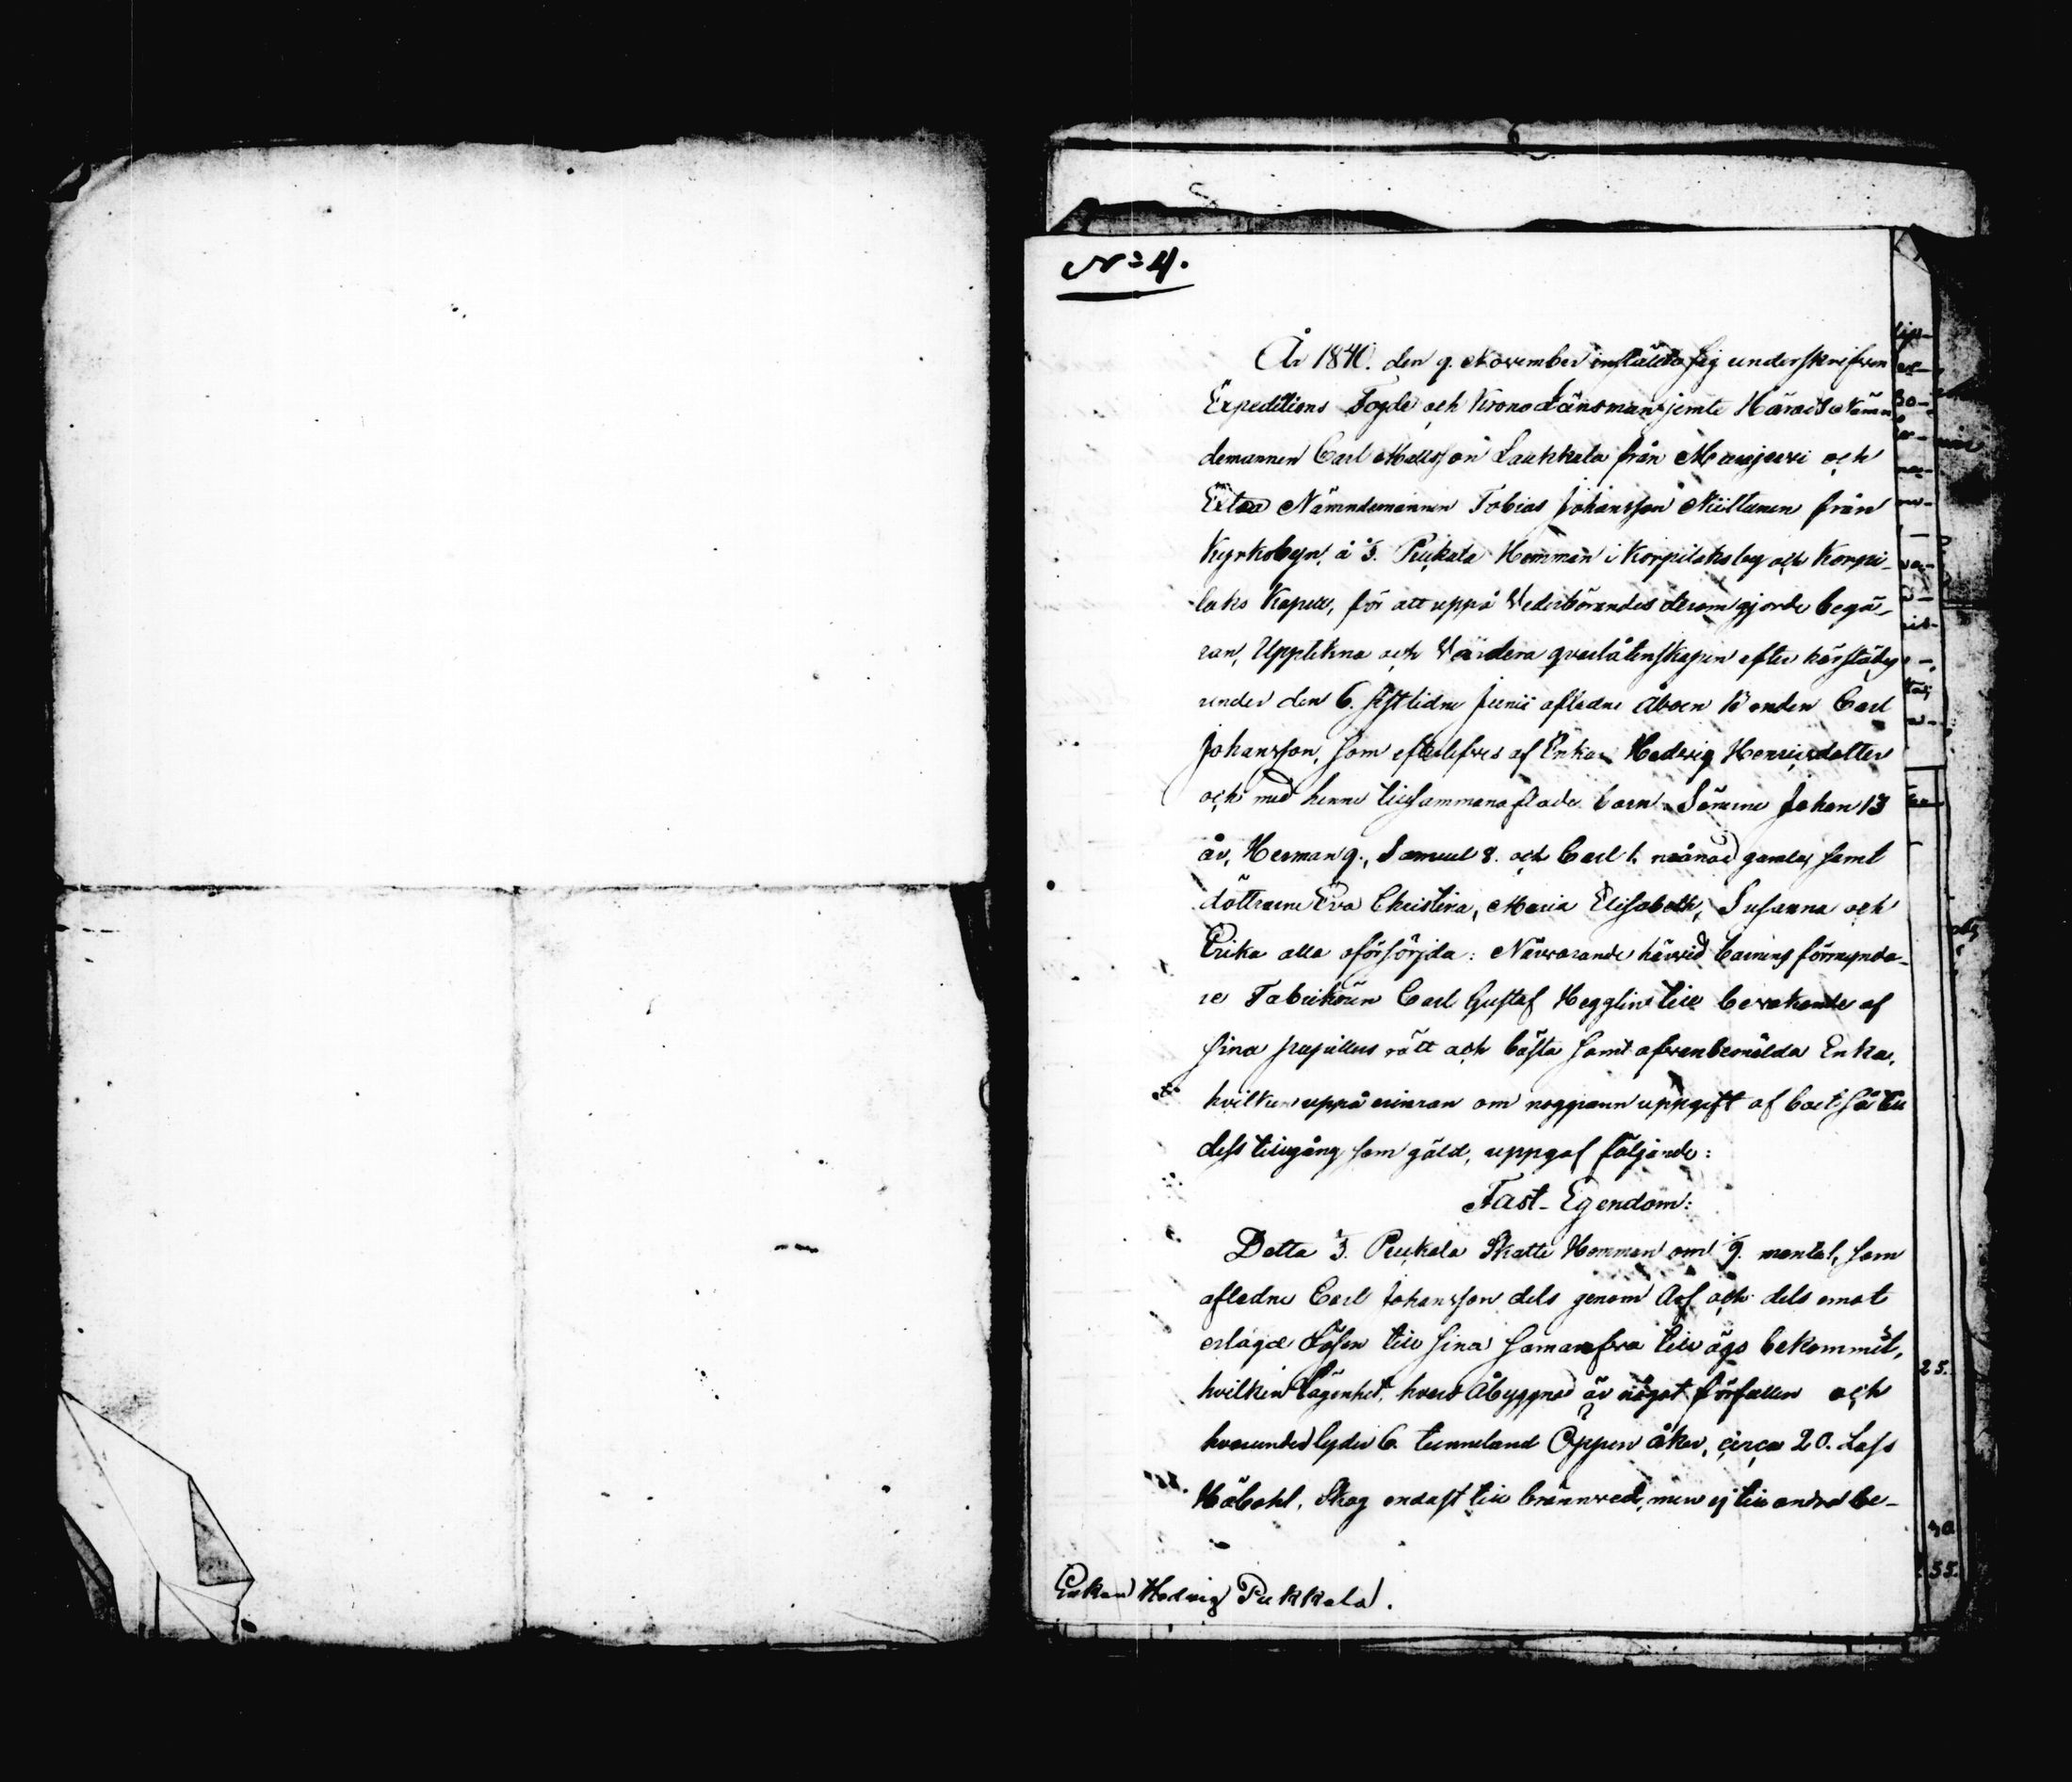 N:o 4.
År 1840. den 9. November inställde sig underskrifven
Expeditions Fogde och Krono Länsman, jemte Härads Nämn
demannen Carl Mattsson Laukkala från Muurjärvi och
Extra Nämndemannen Tobias Johansson Niittunen från
Kyrkobyn, å № 3. Pukala Hemman i Korpilaks by och Korpi-
laks Kapell, för att uppå Vederbörandes derom gjorde begä-
ran, Uppteckna och Värdera qvarlåtenskapen efter härstädes
under den 6. sistledne Junii afledne Åboen Bonden Carl
Johansson, som efterlefves af Enkan Hedvig Henricsdotter
och med henne tillsammanaflade barn Sönerne Johan 13
år, Herman 9., Samuel 8. och Carl 1. månad gamla, samt
döttrarne Eva Christina, Maria Elisabeth, Susanna och
Erika alla oförsörjda: Närvarande härvid barnens förmynda-
re Fabrikören Carl Gustaf Hegglin till bevakande af
sina pupillers rätt och bästa samt ofvanbemälda Enka,
hvilken uppå erinran om noggrann uppgift af boet så till
dess tillgång som gäld, uppgaf följande:
Fast Egendom:
Detta № 3. Pukala Skatte Hemman om 1/9. mantal, som
afledne Carl Johansson dels genom Arf och dels emot
erlagd Lösen till sina samarfva till ägo bekommit,
hvilken lägenhet, hvars Åbyggnad är något förfallen och
hvarunder lyder 6. tunneland Öppen åker, circa 20. Lass
Höbohl, Skog endast till brännved, men ej till andra be-
Enkan Hedvig Pukkala.
25.
30
55.